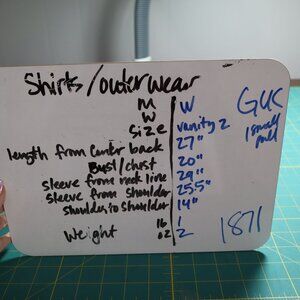 Shirts/outerwear
M W GUC
W
Size vanity 2 1 small pull
length from center back 27"
Bust/chest 20"
sleeve from neck line 29"
sleeve from shoulder 25.5"
shoulder to shoulder 14"
Weight lb 1
oz 2 1871